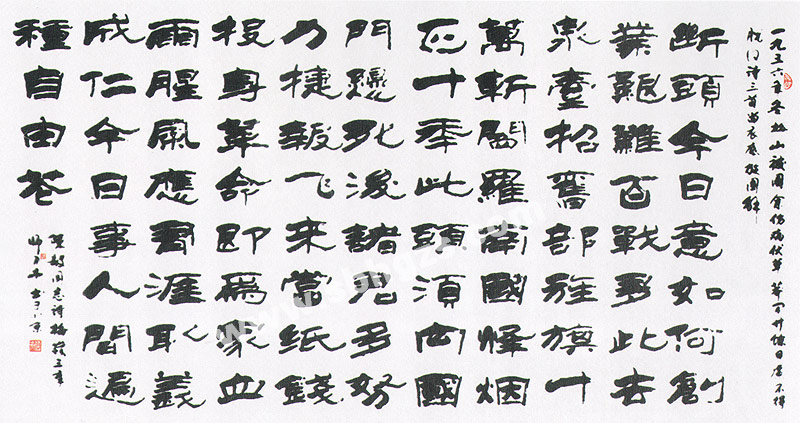 一九三六年冬梅山被圍余伤病伏草莽间廿馀日虑不得
脱得诗三首留衣底旋圍解
断頭今日意如何創
業艱難百戰多此去
泉臺招舊部旌旗十
萬斬閻羅南國烽烟
正十秊此頭須向國
門懸死後諸君多努
力捷報飞來當紙錢
投身革命即爲家血
雨腥風應有涯取義
成仁今日事人間遍
種自由花
陳毅同志诗梅嶺三章